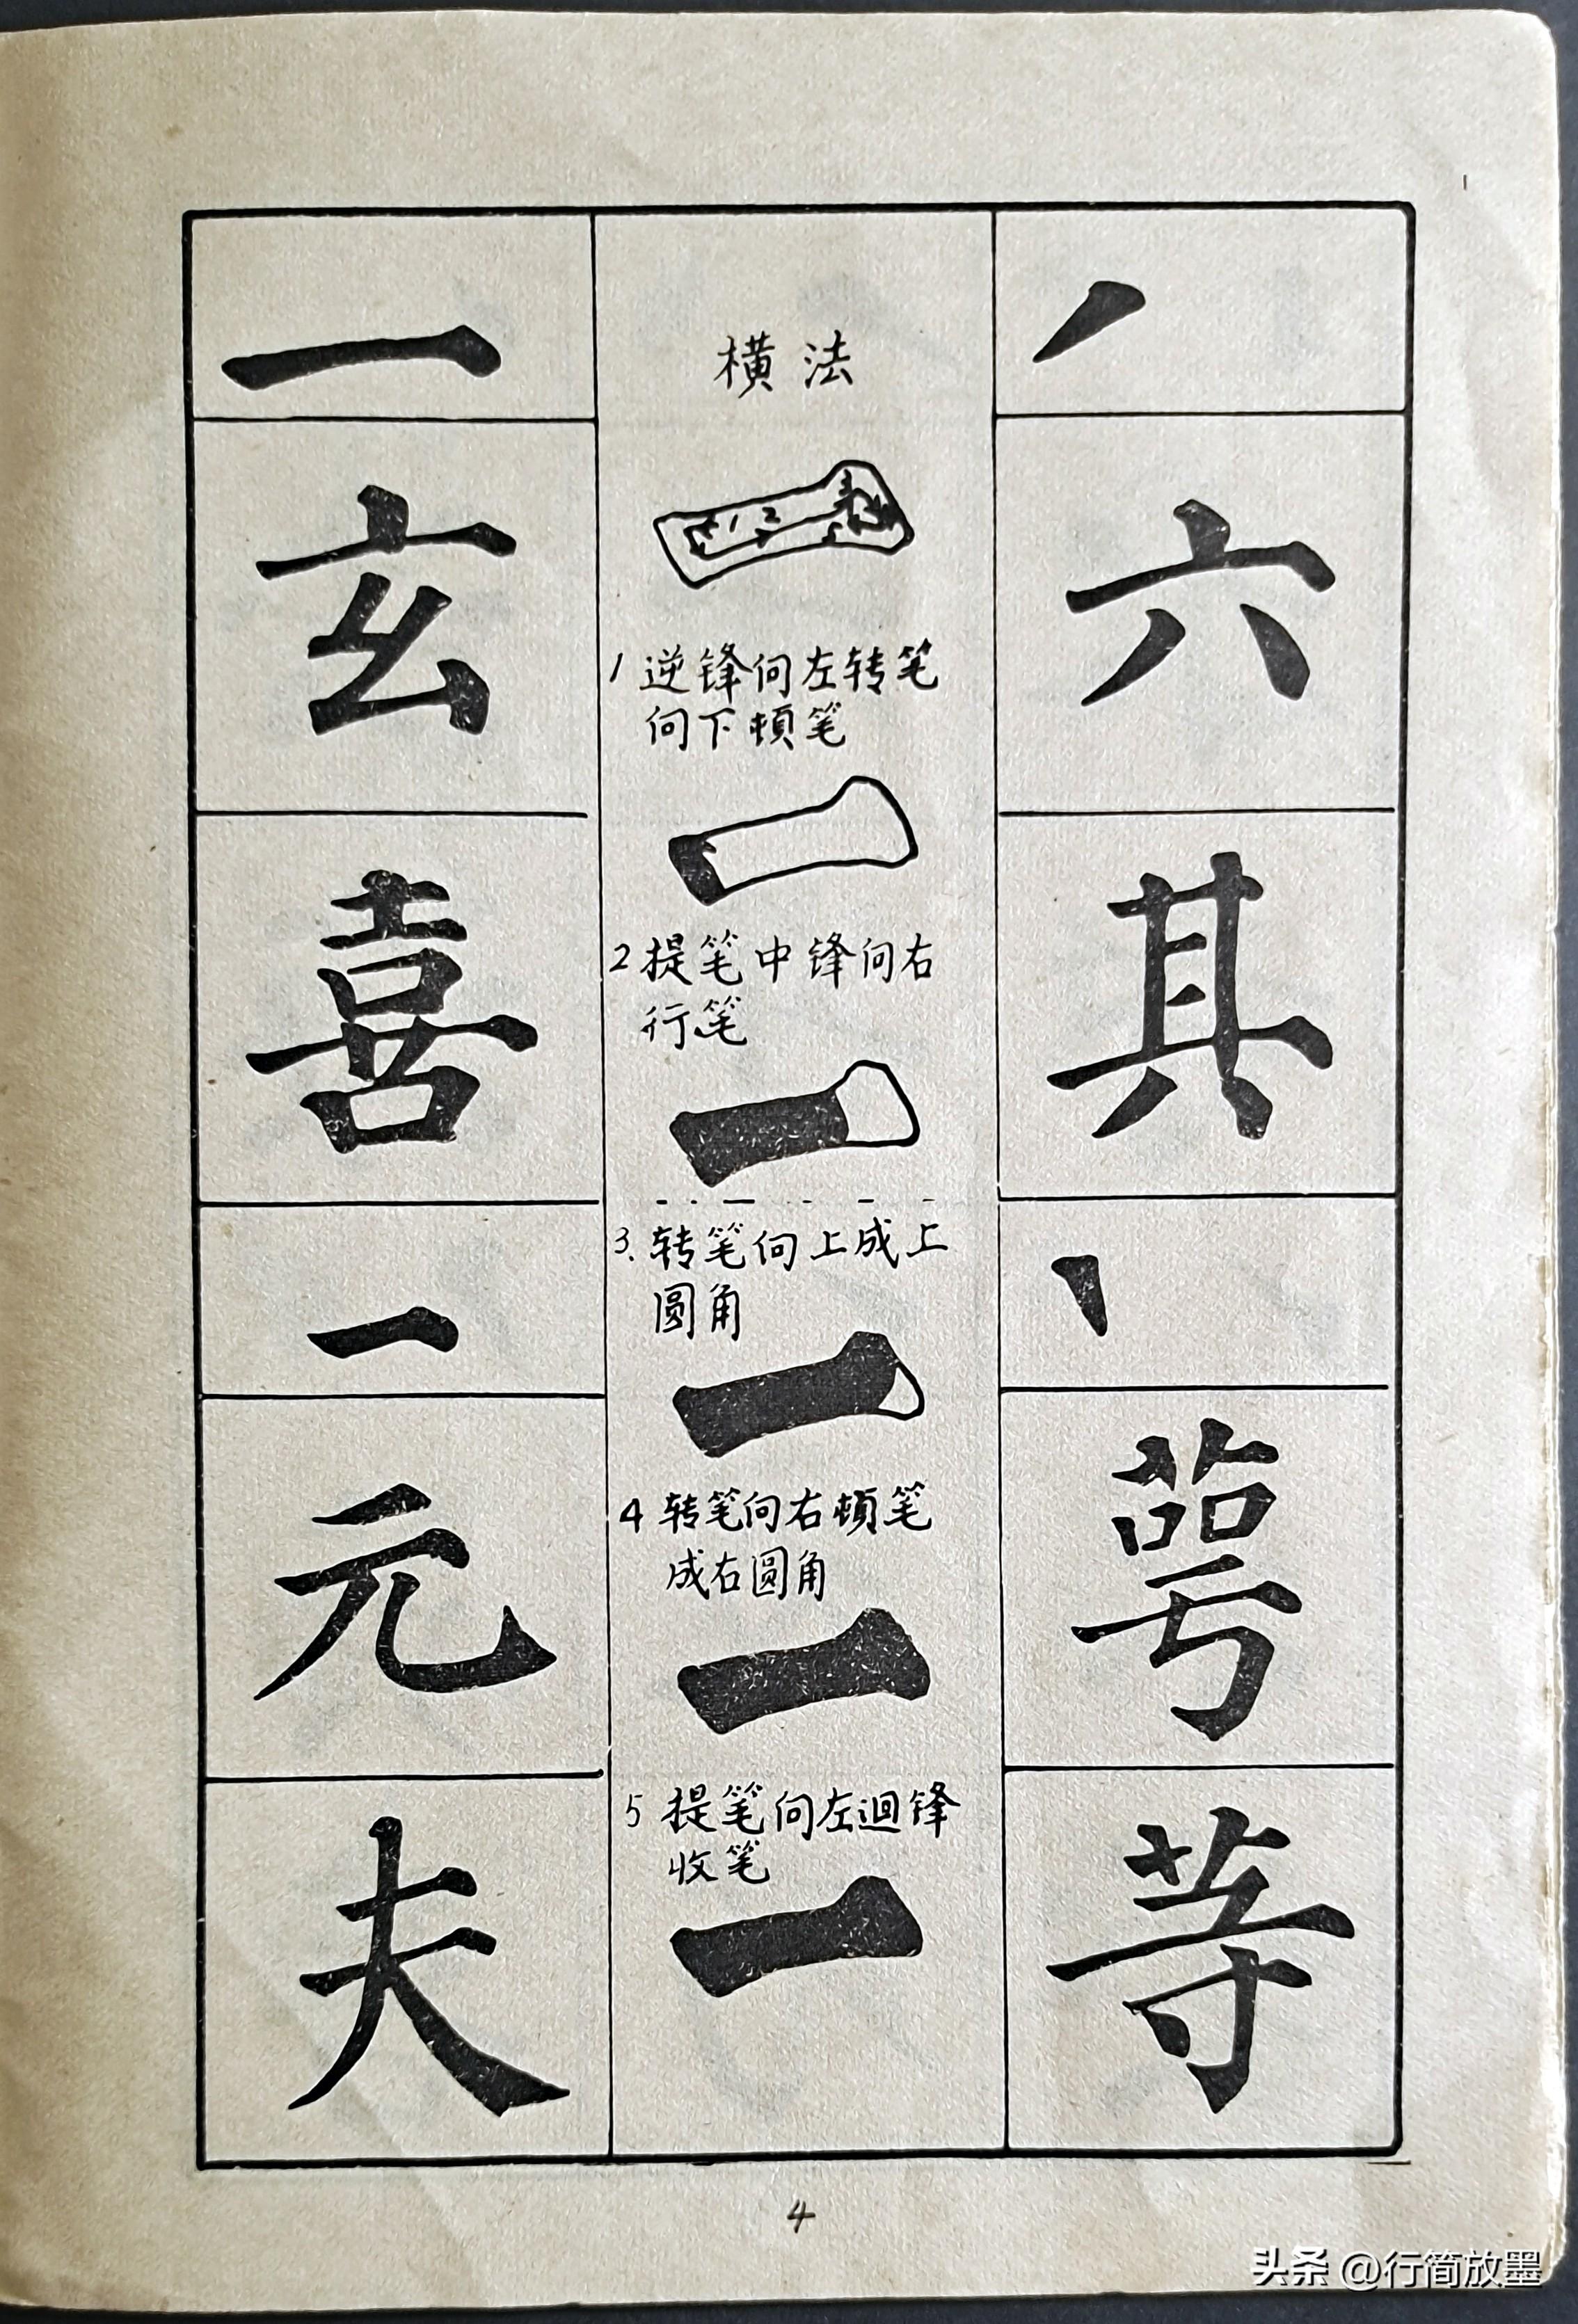 六
其
萼
等
横法
1 逆锋向左转笔
向下頓笔
2 提笔中锋向右
行笔
3. 转笔向上成上
圆角
4 转笔向右頓笔
成右圆角
5 提笔向左迴锋
收笔
一
玄
喜
一
元
夫
4
头条 @行简放墨